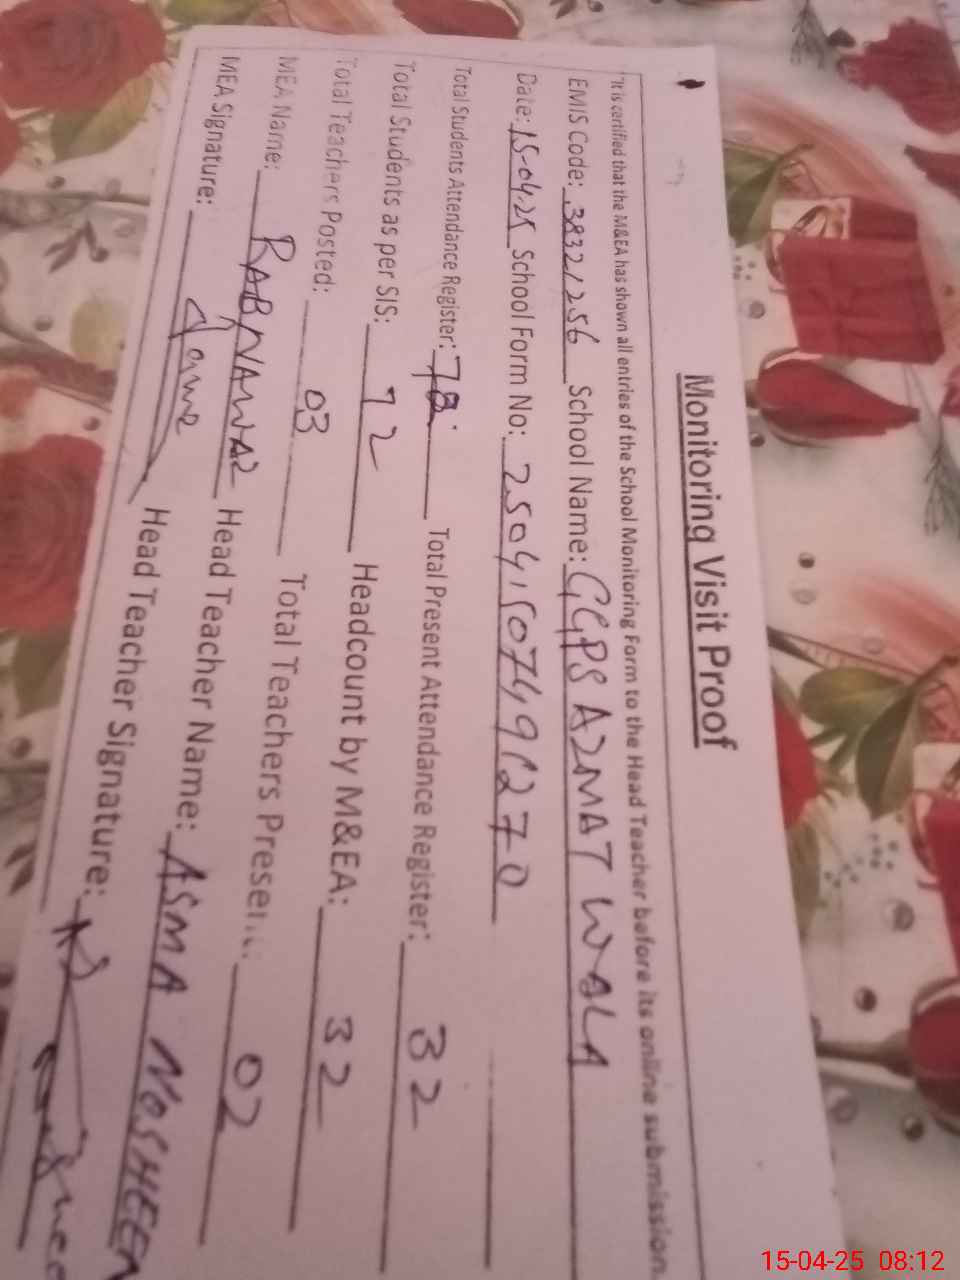 Monitoring Visit Proof
"It is certified that the M&EA has shown all entries of the School Monitoring Form to the Head Teacher before its online submission.
EMIS Code: 38321256 School Name: GGPS AZMAT WALA
Date: 15-04-25 School Form No: 2504150749
Total Students Attendance Register: 78 Total Present Attendance Register: 32
Total Students as per SIS: 72 Headcount by M&EA: 32
Total Teachers Posted: 03 Total Teachers Present: 02
MEA Name: RABNAWAZ Head Teacher Name: ASMA NOSHEEN
MEA Signature: Head Teacher Signature:
15-04-25 08:12